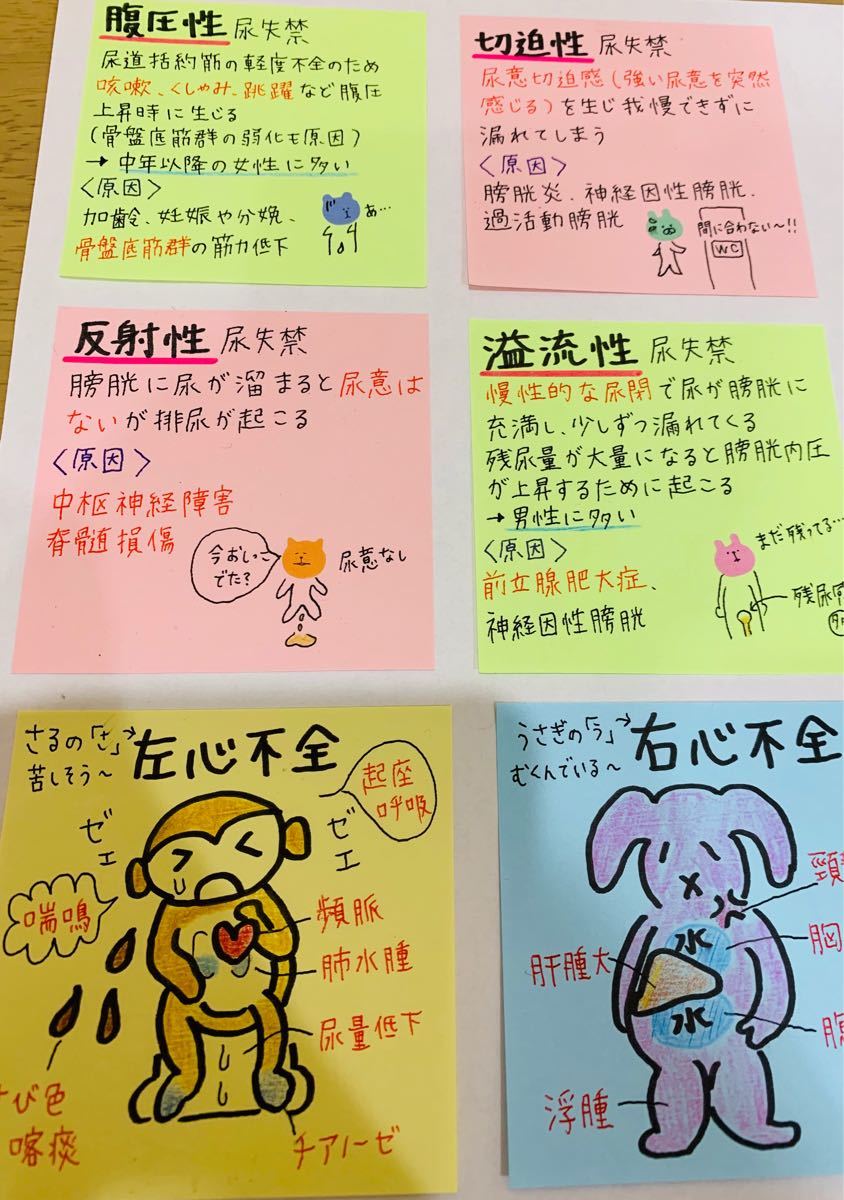 腹圧性 尿失禁
尿道括約筋の軽度不全のため
咳嗽、くしゃみ、跳躍など腹圧
上昇時に生じる
(骨盤底筋群の弱化も原因)
→中年以降の女性に多い
〈原因〉
加齢、妊娠や分娩、
骨盤底筋群の筋力低下
あ…
切迫性 尿失禁
尿意切迫感(強い尿意を突然
感じる)を生じ我慢できずに
漏れてしまう
〈原因〉
膀胱炎、神経因性膀胱、
過活動膀胱
間に合わない〜!!
WC
反射性 尿失禁
膀胱に尿が溜まると尿意は
ないが排尿が起こる
〈原因〉
中枢神経障害
脊髄損傷
今おしっこ
でた?
尿意なし
溢流性 尿失禁
慢性的な尿閉で尿が膀胱に
充満し、少しずつ漏れてくる
残尿量が大量になると膀胱内圧
が上昇するために起こる
→男性に多い
〈原因〉
前立腺肥大症、
神経因性膀胱
まだ残ってる…
残尿
さるの「さ」→
苦しそう〜
左心不全
起座
呼吸
ゼェ
ゼェ
喘鳴
頻脈
肺水腫
尿量低下
び色
喀痰
チアノーゼ
うさぎの「う」→
むくんでいる〜
右心不全
頸
水
胸
肝腫大
水
腹
浮腫